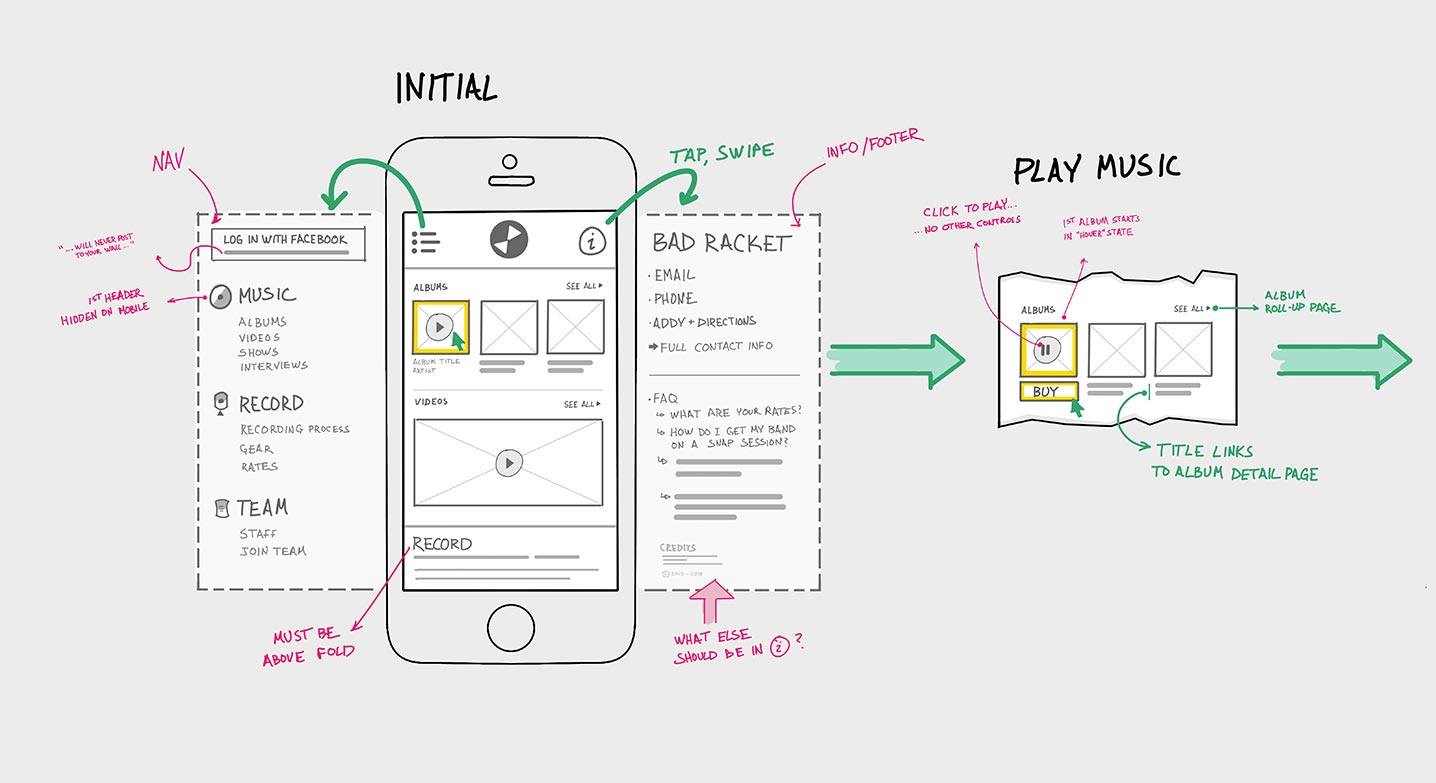 INITIAL
NAV
TAP, SWIPE
INFO/FOOTER
"...WILL NEVER POST
TO YOUR WALL..."
1ST HEADER
HIDDEN ON MOBILE
LOG IN WITH FACEBOOK
MUSIC
ALBUMS
VIDEOS
SHOWS
INTERVIEWS
RECORD
RECORDING PROCESS
GEAR
RATES
TEAM
STAFF
JOIN TEAM
i
ALBUMS
SEE ALL
ALBUM TITLE
ARTIST
VIDEOS
SEE ALL
RECORD
MUST BE
ABOVE FOLD
BAD RACKET
· EMAIL
· PHONE
· ADDY + DIRECTIONS
FULL CONTACT INFO
· FAQ
WHAT ARE YOUR RATES?
HOW DO I GET MY BAND
ON A SNAP SESSION?
CREDITS
WHAT ELSE
SHOULD BE IN i ?
PLAY MUSIC
CLICK TO PLAY...
...NO OTHER CONTROLS
1ST ALBUM STARTS
IN "HOVER" STATE
ALBUMS
SEE ALL
BUY
ALBUM
ROLL-UP PAGE
TITLE LINKS
TO ALBUM DETAIL PAGE